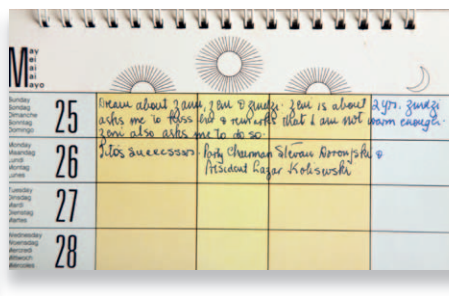 May
ei
ai
ai
ayo
Sunday
Sondag
Dimanche
Sonntag
Domingo
25
Dream about Zami, Zeni & Zindzi. Zeni is about 2 yrs. Zindzi
asks me to kiss her & remarks that I am not warm enough.
Zeni also asks me to do so.
Monday
Maandag
Lundi
Montag
Lunes
26
Titos successors. Party Chairman Stevan Doronjski &
President Lazar Kolisevski
Tuesday
Dinsdag
Mardi
Dienstag
Martes
27
Wednesday
Woensdag
Mercredi
Mittwoch
Miercoles
28